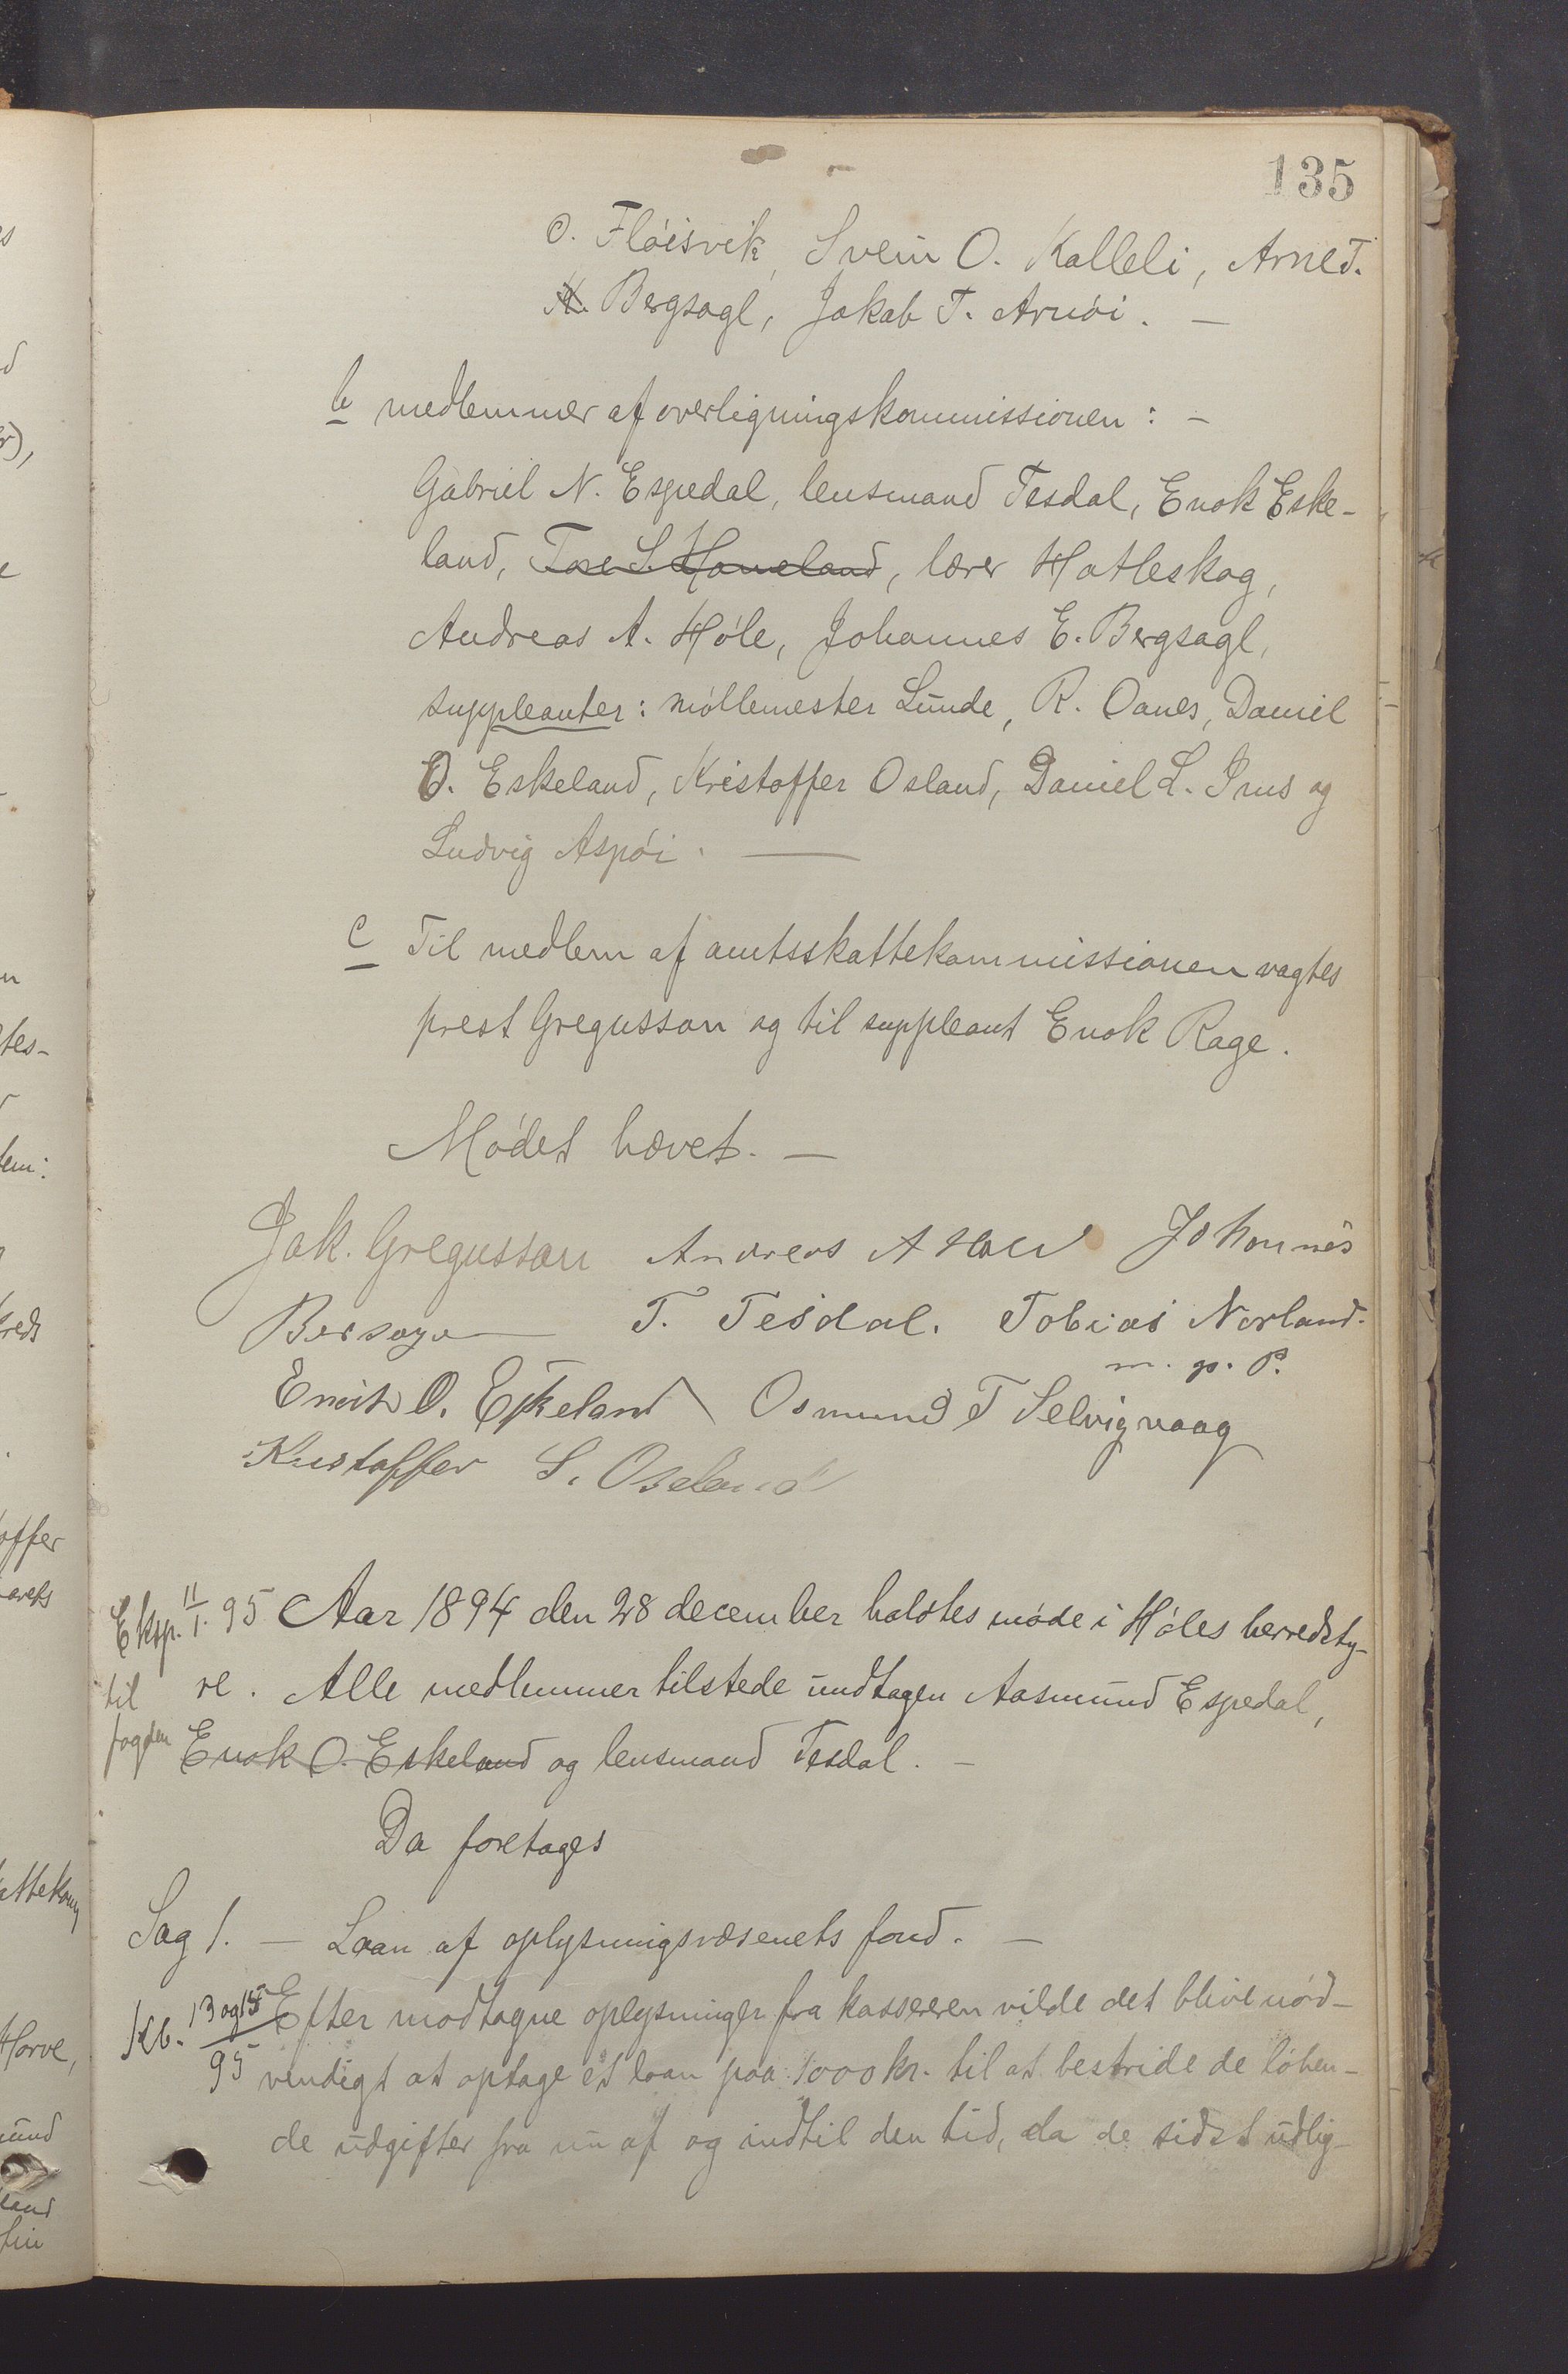 135
O. Fløisvik, Svein O. Kalleli, Arne T.
K. Bergsagl, Jakob T. Arnøi. —
b medlemmer af overligningskommissionen: —
Gabriel N. Espedal, lensmand Tesdal, Enok Eske-
land, Tore S. Haveland, lærer Hatleskog,
Andreas A. Høle, Johannes E. Bergsagl,
suppleanter: møllemester Lunde, R. Oanes, Daniel
O. Eskeland, Kristoffer Osland, Daniel L. Ims og
Ludvig Aspøi. —
c Til medlem af amtsskattekommissionen vagtes
prest Gregusson og til suppleant Enok Rage.
Mødet hævet. —
Jak. Gregusson Andreas A Høle Johannes
Bersagel T. Tesdal. Tobias Norland.
m. p. P.
Enok O. Eskeland Osmund T Selvigvaag
Kristoffer S. Oseland
Eksp. 11/1. 95 Aar 1894 den 28 december holdtes møde i Høles herredsty-
til re. Alle medlemmer tilstede undtagen Aasmund Espedal,
fogden Enok O. Eskeland og lensmand Tesdal. —
Da foretages
Sag 1. — Laan af oplysningsvæsenets fond. —
Kb. 13 og 15 Efter modtagne oplysninger fra kassereren vilde det blive nød-
95 vendigt at optage et laan paa 1000 kr. til at bestride de løben-
de udgifter fra nu af og indtil den tid, da de sidst udlig-